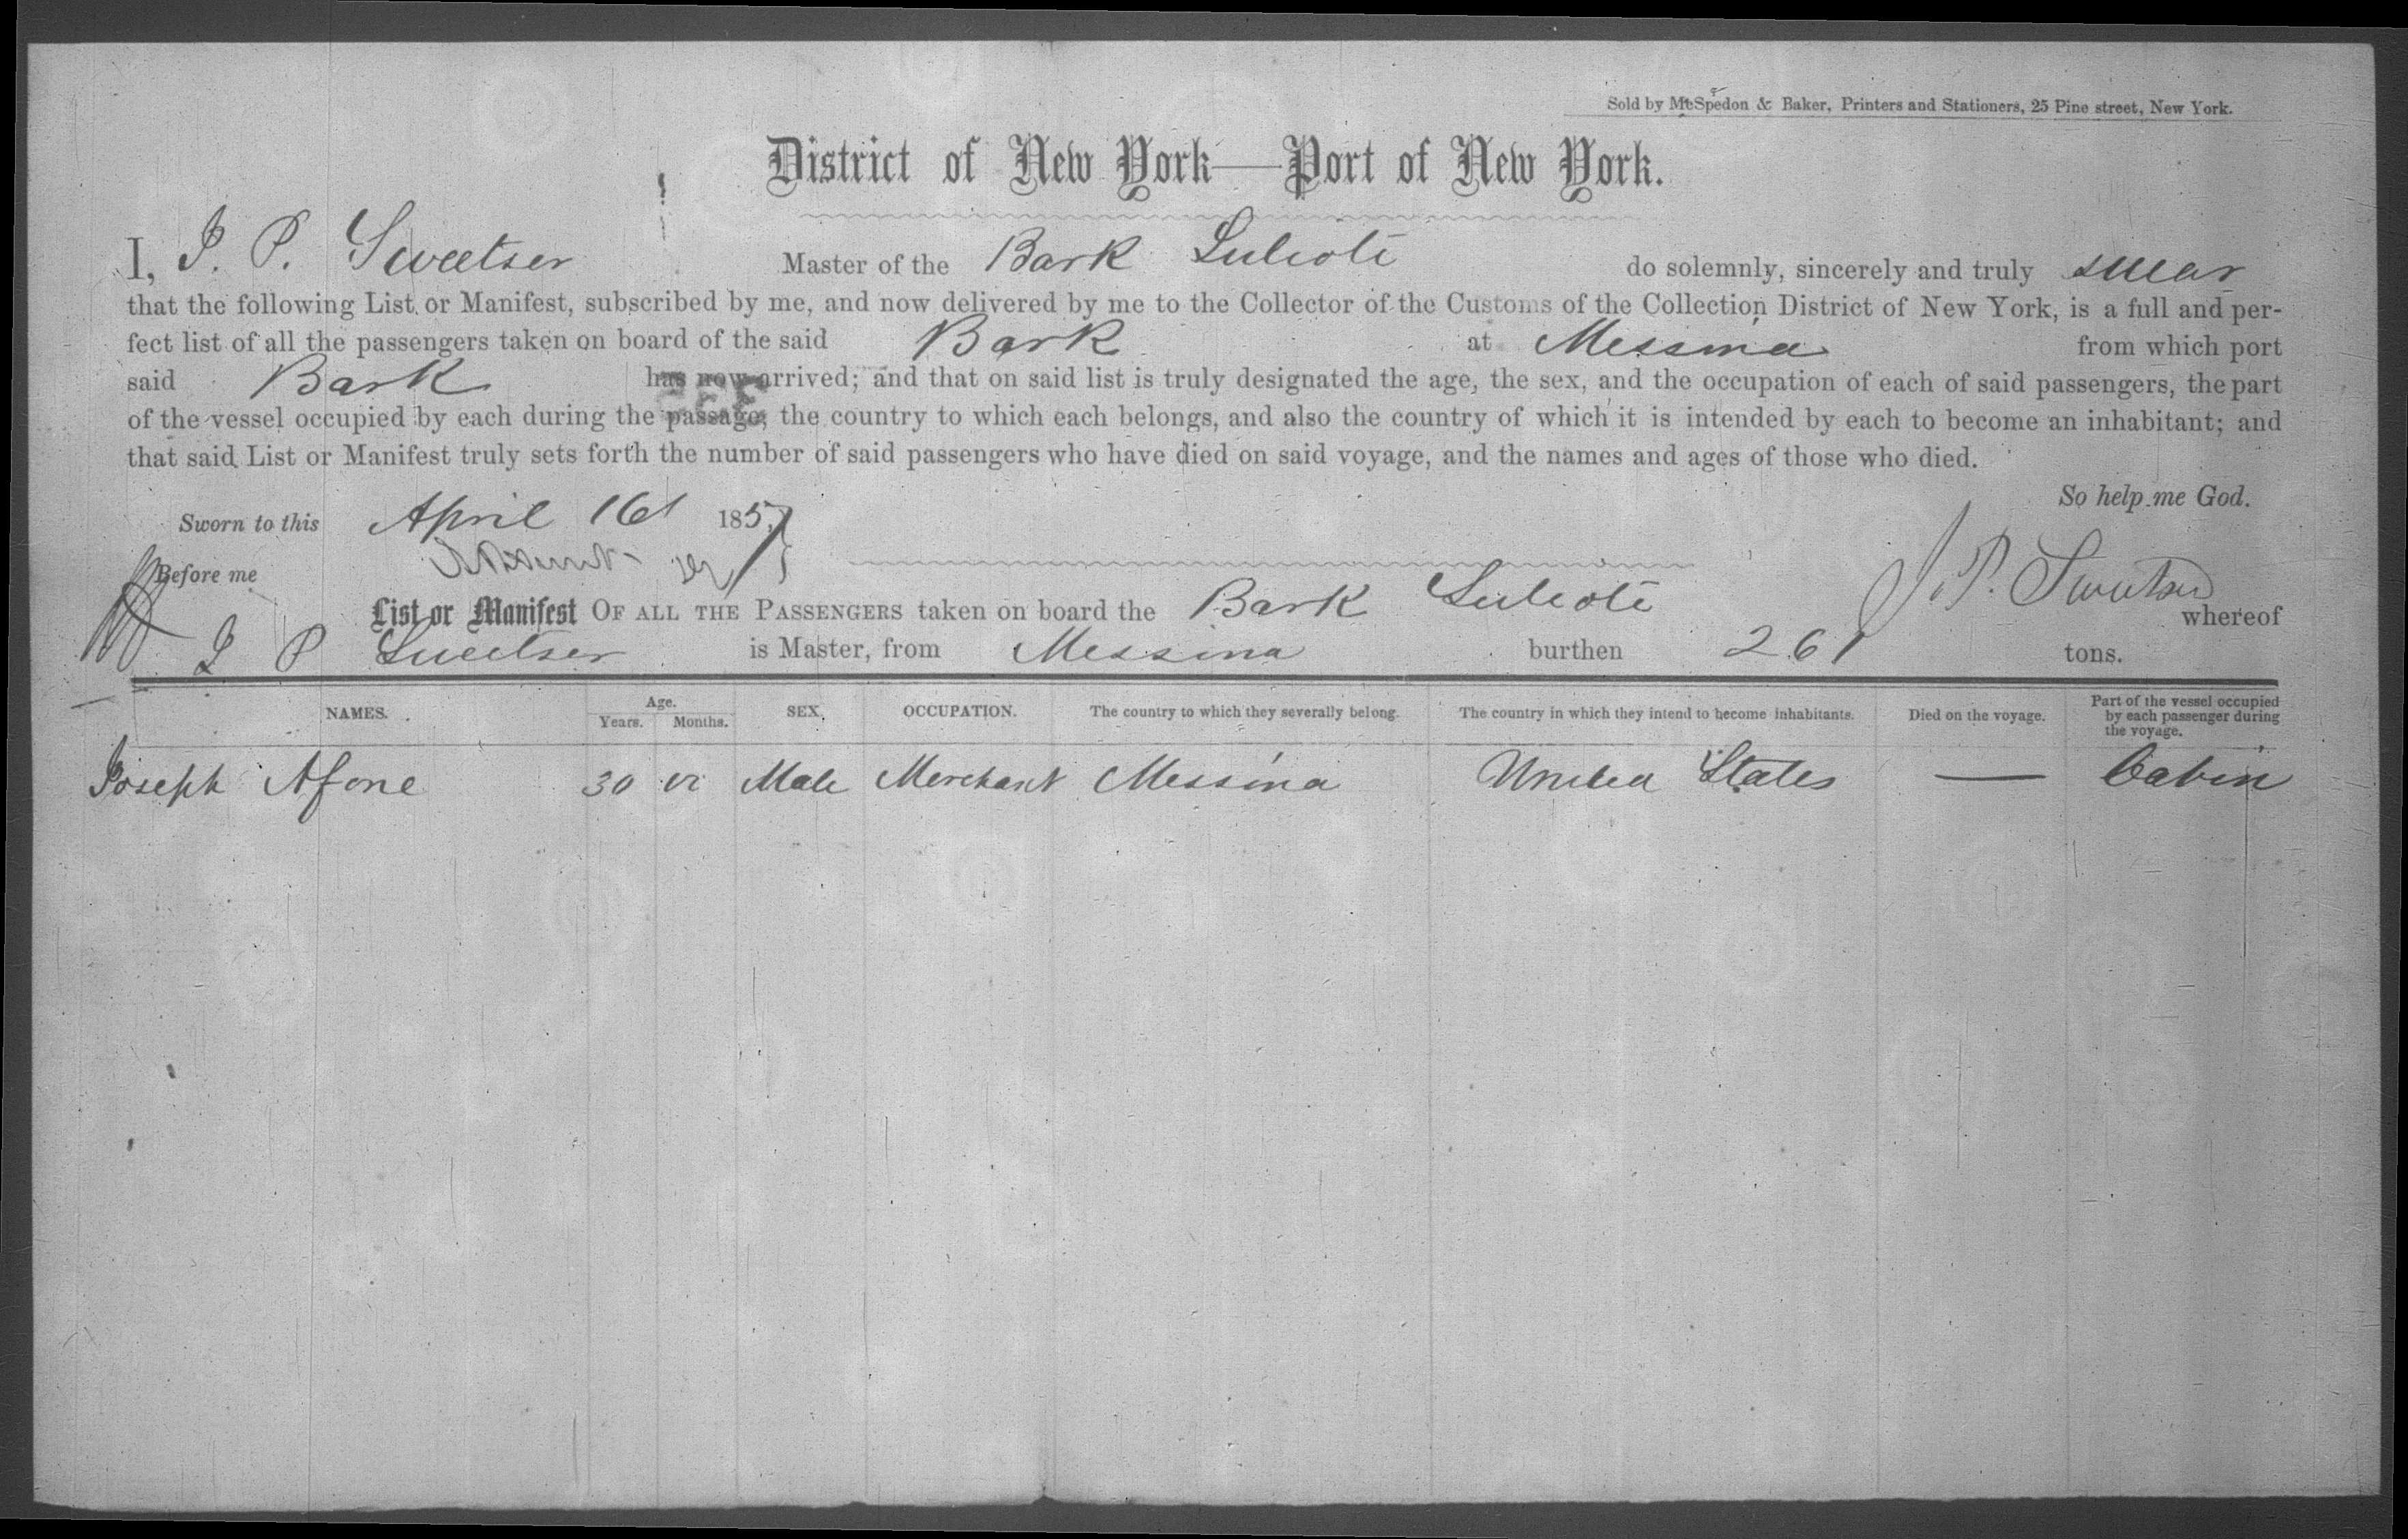 Sold by McSpedon & Baker, Printers and Stationers, 25 Pine street, New York.
District of New York—Port of New York.
I, J. P. Sweetser Master of the Bark Suliote do solemnly, sincerely and truly swear
that the following List or Manifest, subscribed by me, and now delivered by me to the Collector of the Customs of the Collection District of New York, is a full and per-
fect list of all the passengers taken on board of the said Bark at Messina from which port
said Bark has now arrived; and that on said list is truly designated the age, the sex, and the occupation of each of said passengers, the part
of the vessel occupied by each during the passage, the country to which each belongs, and also the country of which it is intended by each to become an inhabitant; and
that said List or Manifest truly sets forth the number of said passengers who have died on said voyage, and the names and ages of those who died.
So help me God.
Sworn to this April 16 1857
Before me
J. P. Sweetser
List or Manifest OF ALL THE PASSENGERS taken on board the Bark Suliote whereof
J P Sweetser is Master, from Messina burthen 261 tons.
NAMES. Age. Years. Months. SEX. OCCUPATION. The country to which they severally belong. The country in which they intend to become inhabitants. Died on the voyage. Part of the vessel occupied by each passenger during the voyage.
Joseph Afone 30 Male Merchant Messina United States — Cabin